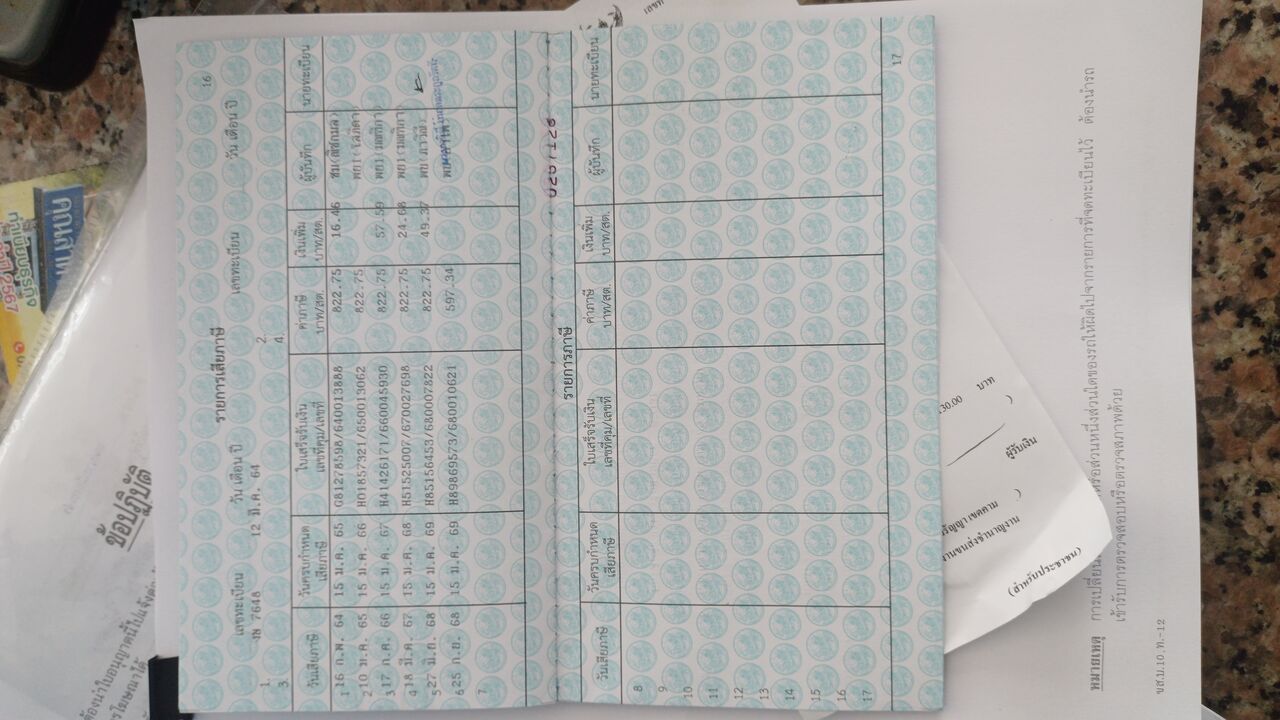 16
รายการเสียภาษี
เลขทะเบียน วัน เดือน ปี เลขทะเบียน วัน เดือน ปี
1. 7648 12 มี.ค. 64 2.
3. 4.
วันเสียภาษี วันครบกำหนดเสียภาษี ใบเสร็จรับเงิน เลขที่คุม/เลขที่ ค่าภาษี บาท/สต. เงินเพิ่ม บาท/สต. ผู้บันทึก นายทะเบียน
1 16 ก.พ. 64 15 ม.ค. 65 G81278598/640013888 822.75 16.46
2 10 ม.ค. 65 15 ม.ค. 66 H01857321/650013062 822.75
3 17 ก.ค. 66 15 ม.ค. 67 H41426171/660045930 822.75 57.59
4 18 มี.ค. 67 15 ม.ค. 68 H51525007/670027698 822.75 24.68
5 27 มิ.ย. 68 15 ม.ค. 69 H85156453/680007822 822.75 49.37
6 25 ก.ย. 68 15 ม.ค. 69 H89869573/680010621 597.34
7
รายการภาษี
วันเสียภาษี วันครบกำหนดเสียภาษี ใบเสร็จรับเงิน เลขที่คุม/เลขที่ ค่าภาษี บาท/สต. เงินเพิ่ม บาท/สต. ผู้บันทึก นายทะเบียน
8
9
10
11
12
13
14
15
16
17
17
เลขที่
30.00 บาท
)
ผู้รับเงิน
)
(สำหรับประชาชน)
หมายเหตุ การเปลี่ยน หรือส่วนหนึ่งส่วนใดของรถให้ผิดไปจากรายการที่จดทะเบียนไว้ ต้องนำรถ
เข้ารับการตรวจสอบหรือตรวจสภาพด้วย
ขส.บ.10.ท.-12
ข้อปฏิบัติ
2567